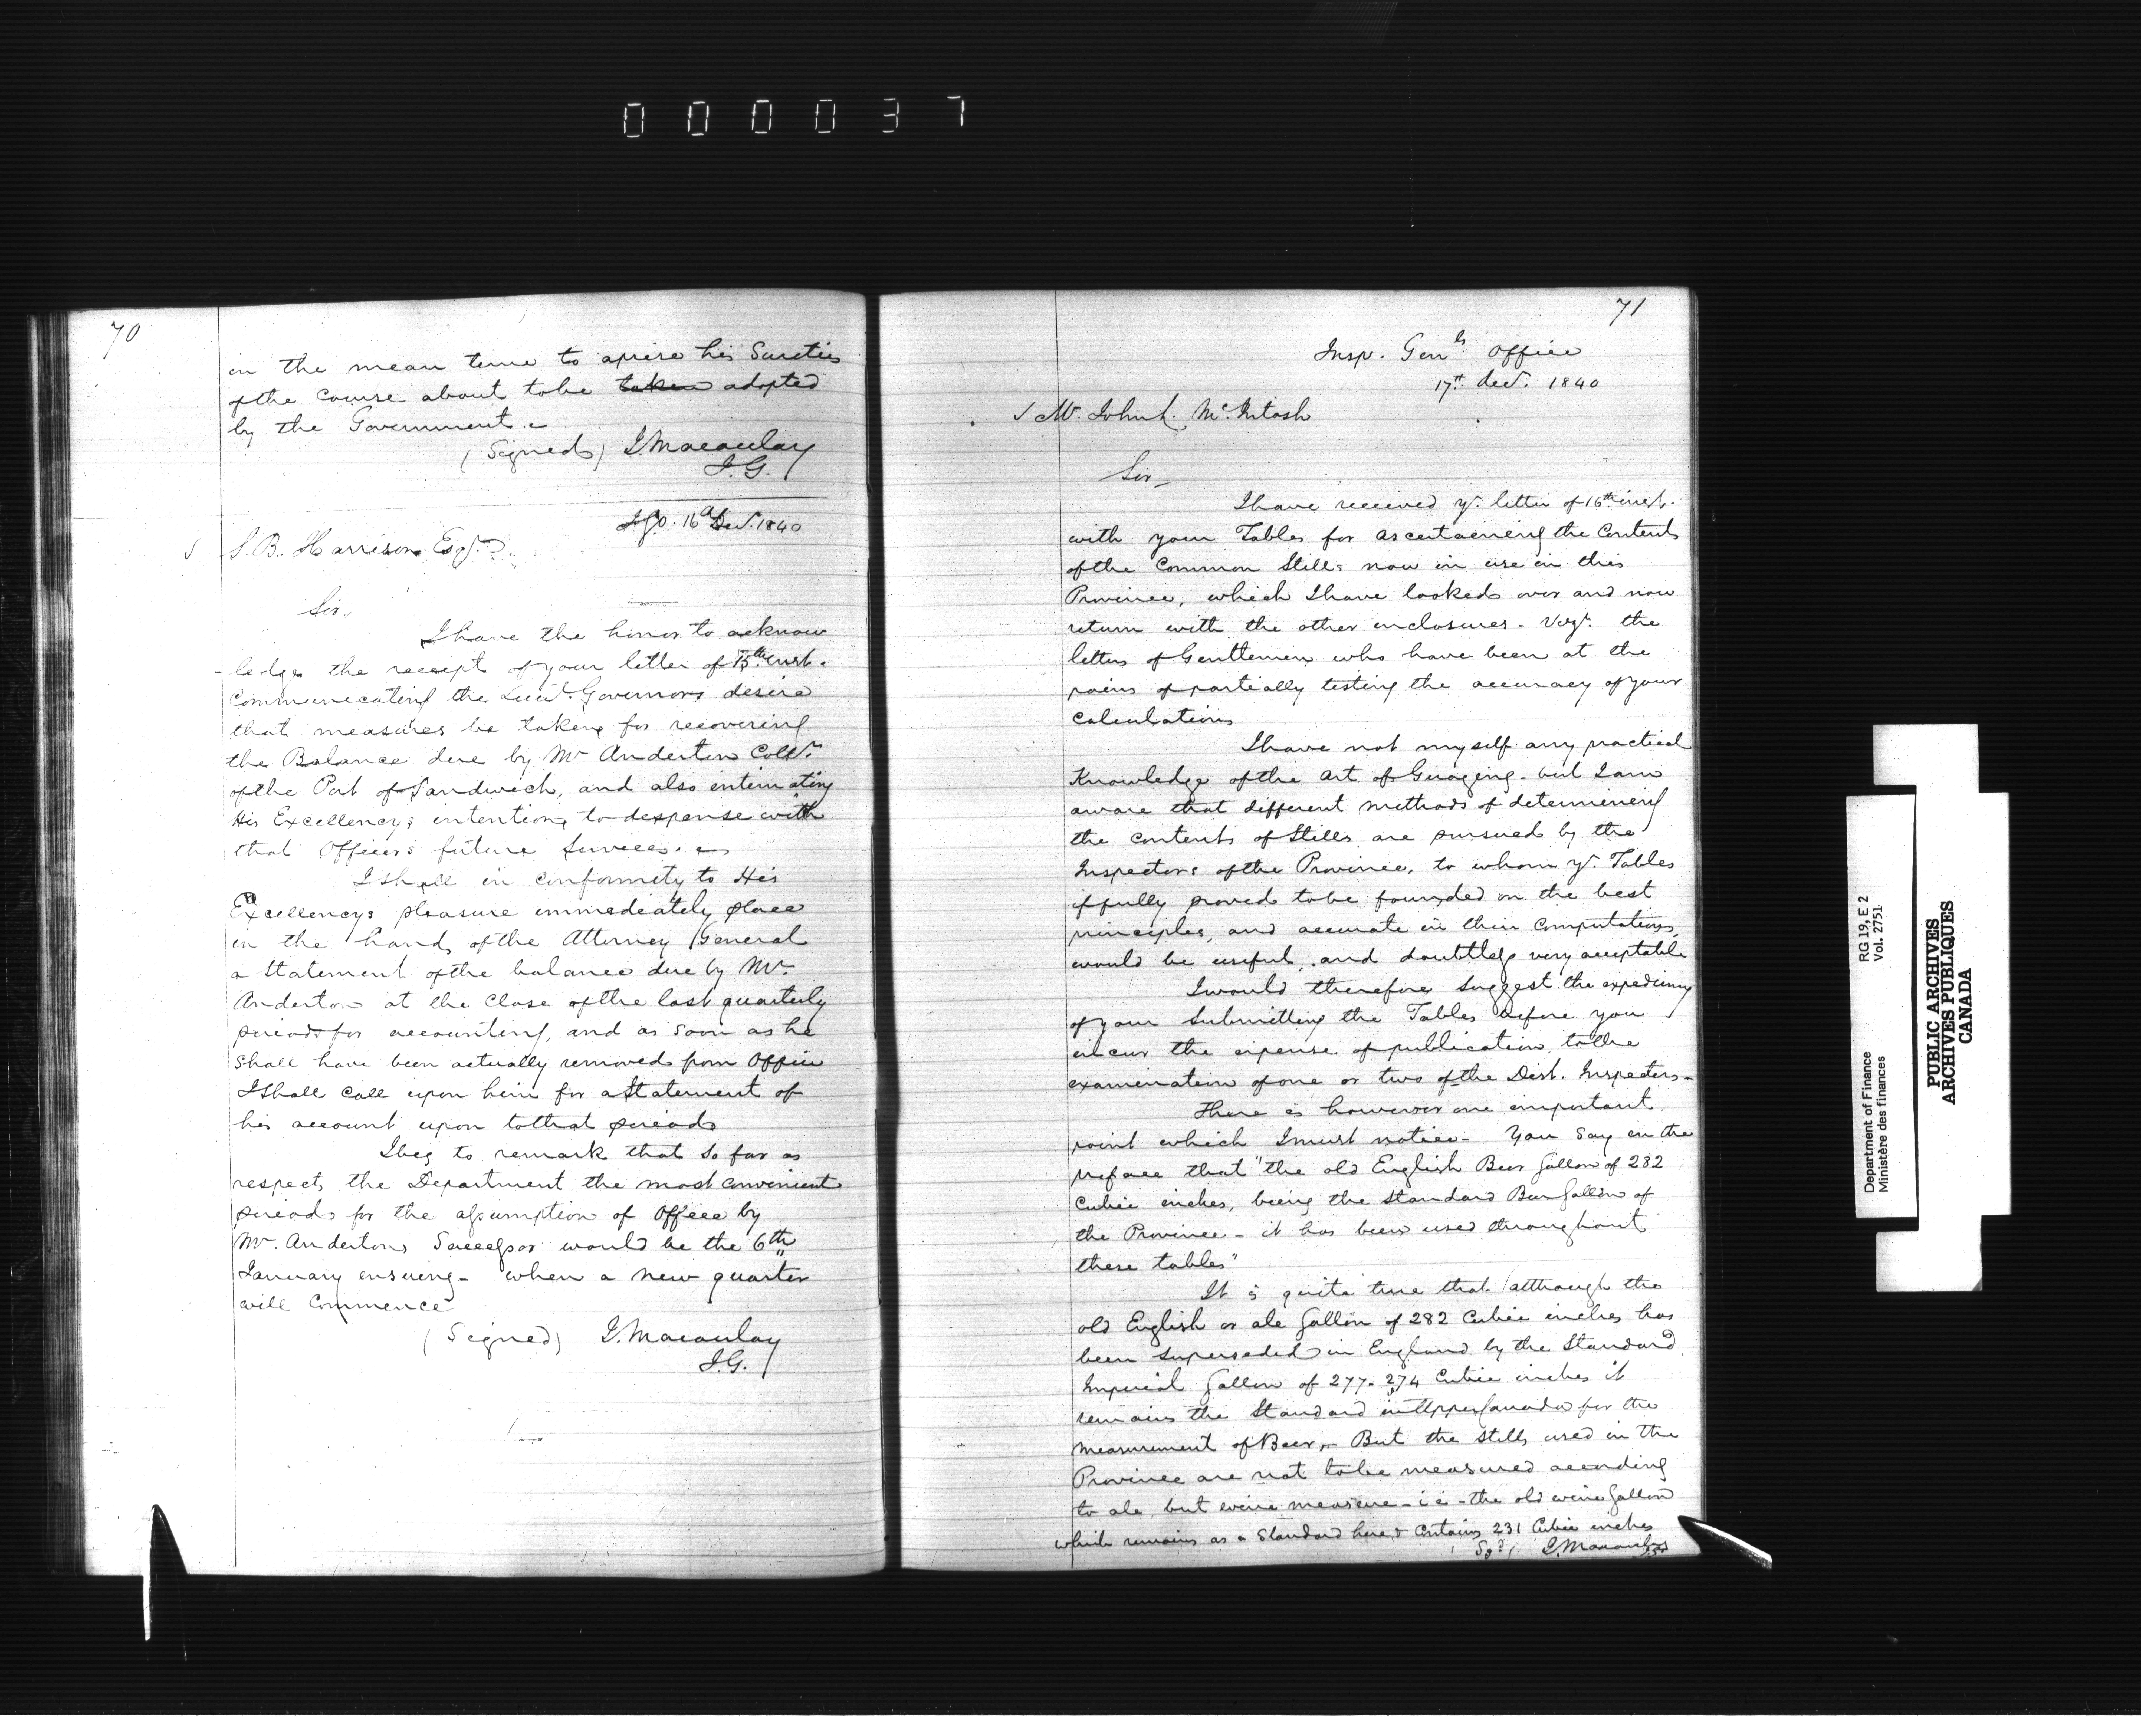 000037
70
in the mean time to aprise his Sureties
of the course about to be taken adopted
by the Government.
(Signed) J. Macaulay
I.G.
I.G.O. 16th Decr. 1840
S. B. Harrison Esqr.
Sir,
I have the honor to acknow
-ledge the receipt of your letter of 15th inst.
Communicating the Lieut. Governors desire
that measures be taken for recovering
the Balance due by Mr Anderton Collr.
of the Port of Sandwich, and also intimating
His Excellencys intention to dispense with
that Officers future Services.
I shall in conformity to His
Excellencys pleasure immediately place
in the hands of the Attorney General
a Statement of the balance due by Mr.
Anderton at the Close of the last quarterly
period for accounting, and as soon as he
shall have been actually removed from Office
I shall call upon him for a Statement of
his account upon to that period
I beg to remark that so far as
respects the Department the most convenient
period for the assumption of Office by
Mr. Andertons Successor would be the 6th
January ensuing - when a new quarter
will Commence
(Signed) J. Macaulay
I.G.
71
Insp. Genls. Office
17th Decr. 1840
Mr. John L. McIntosh
Sir,
I have received yr. letter of 16th inst.
with your Tables for ascertaining the Contents
of the Common Stills now in use in this
Province, which I have looked over and now
return with the other enclosures - Vizt. the
letters of Gentlemen who have been at the
pains of partially testing the accuracy of your
Calculations
I have not myself any practical
Knowledge of the Art of Guaging - but I am
aware that different methods of determining
the contents of Stills are pursued by the
Inspectors of the Province, to whom yr. Tables
if fully proved to be founded on the best
principles, and accurate in their Computations,
would be useful, and doubtless very acceptable
I would therefore suggest the expediency
of your Submitting the Tables before you
incur the expense of publication, to the
examination of one or two of the Dist. Inspectors -
There is however one important
point which I must notice - You say in the
preface that "the old English Beer Gallon of 282
Cubic inches, being the Standard Beer Gallon of
the Province - it has been used throughout
these tables"
It is quite true that although the
old English or ale Gallon of 282 Cubic inches has
been Superseded in England by the Standard
Imperial Gallon of 277.274 Cubic inches it
remains the Standard in Upper Canada for the
measurement of Beer, - But the Stills used in the
Province are not to be measured according
to ale but wine measure - i e - the old wine Gallon
which remains as a Standard here & Contains 231 Cubic inches
Sgd. J. Macaulay
Department of Finance
Ministère des finances
RG 19, E 2
Vol. 2751
PUBLIC ARCHIVES
ARCHIVES PUBLIQUES
CANADA